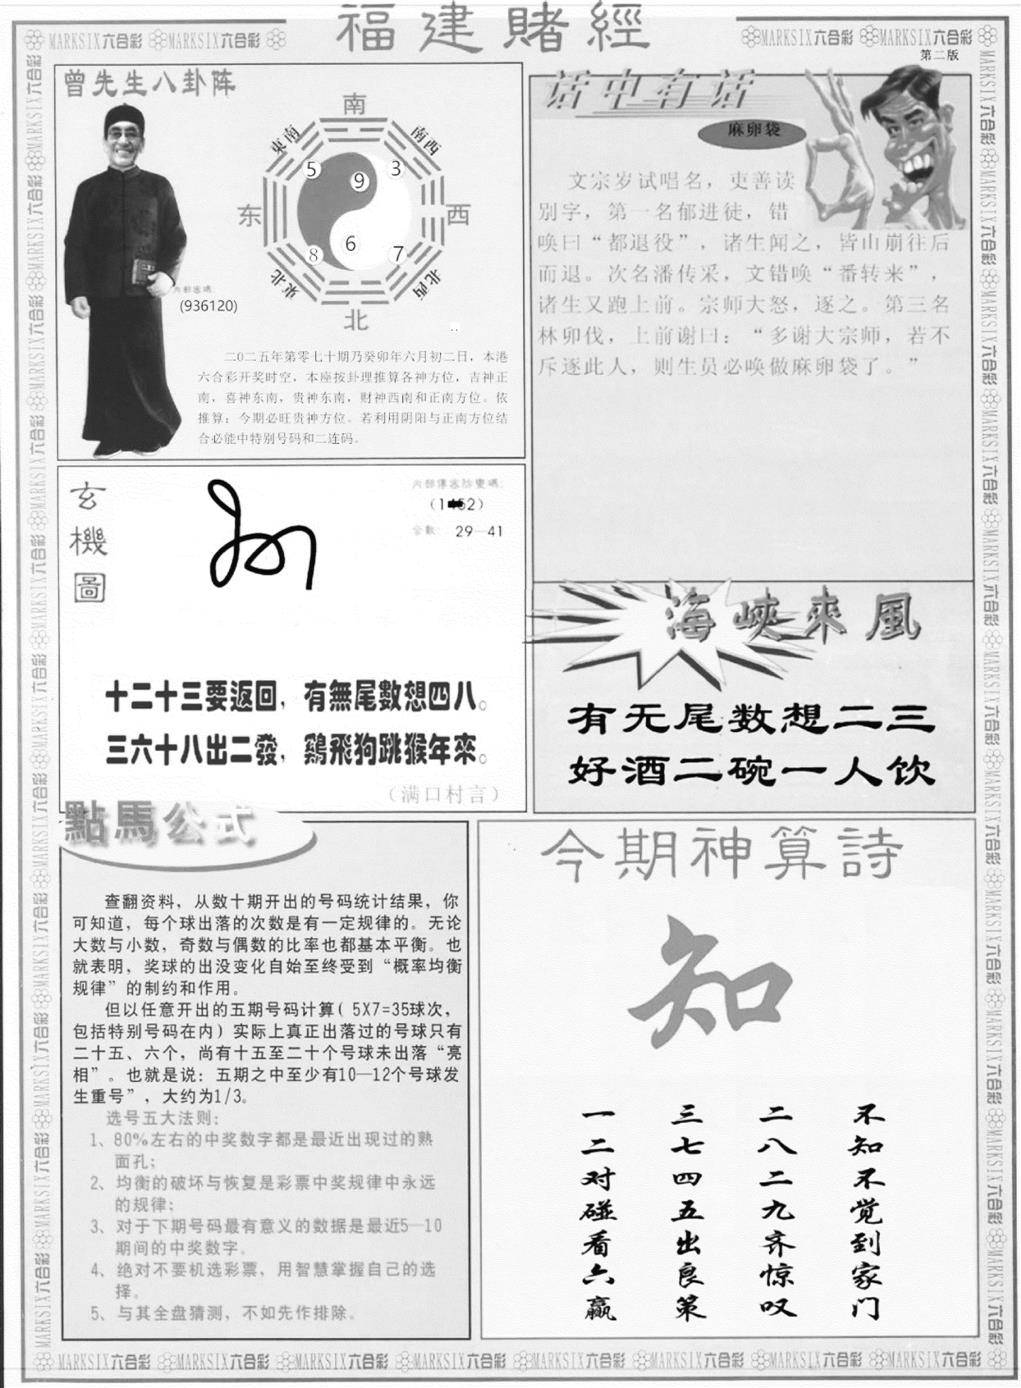 福建賭經
MARKSIX六合彩 MARKSIX六合彩
MARKSIX六合彩 MARKSIX六合彩
第二版
曾先生八卦阵
南
東南
南西
5
9
3
东
西
6
8
7
東北
北西
北
内部密碼:
(936120)
二0二五年第零七十期乃癸卯年六月初二日，本港
六合彩开奖时空，本座按卦理推算各神方位，吉神正
南，喜神东南，贵神东南，财神西南和正南方位。依
推算：今期必旺贵神方位。若利用阴阳与正南方位结
合必能中特别号码和二连码。
话中有话
麻卵袋
文宗岁试唱名，吏善读
别字，第一名郁进徒，错
唤曰“都退役”，诸生闻之，皆山崩往后
而退。次名潘传采，文错唤“番转来”，
诸生又跑上前。宗师大怒，逐之。第三名
林卯伐，上前谢曰：“多谢大宗师，若不
斥逐此人，则生员必唤做麻卵袋了。”
玄機圖
29—41
十二十三要返回，有無尾數想四八。
三六十八出二發，鷄飛狗跳猴年來。
（满口村言）
海峽來風
有无尾数想二三
好酒二碗一人饮
點馬公式
查翻资料，从数十期开出的号码统计结果，你
可知道，每个球出落的次数是有一定规律的。无论
大数与小数，奇数与偶数的比率也都基本平衡。也
就表明，奖球的出没变化自始至终受到“概率均衡
规律”的制约和作用。
但以任意开出的五期号码计算( 5X7=35球次，
包括特别号码在内) 实际上真正出落过的号球只有
二十五、六个，尚有十五至二十个号球未出落“亮
相”。也就是说：五期之中至少有10—12个号球发
生重号”，大约为1/3。
选号五大法则:
1、80%左右的中奖数字都是最近出现过的熟
面孔;
2、均衡的破坏与恢复是彩票中奖规律中永远
的规律;
3、对于下期号码最有意义的数据是最近5—10
期间的中奖数字。
4、绝对不要机选彩票，用智慧掌握自己的选
择。
5、与其全盘猜测，不如先作排除。
今期神算詩
知
不知不觉到家门
二八二九齐惊叹
三七四五出良策
一二对碰看六赢
MARKSIX六合彩 MARKSIX六合彩 MARKSIX六合彩 MARKSIX六合彩 MARKSIX六合彩 MARKSIX六合彩 MARKSIX六合彩 MARKSIX六合彩